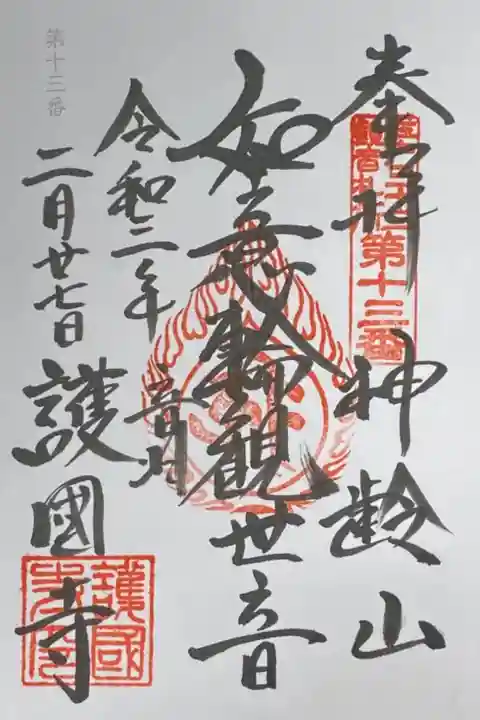 奉拝 神齢山
第十三番
如意輪観世音
音羽
令和二年
二月廿七日
護國寺
護國
第十三番